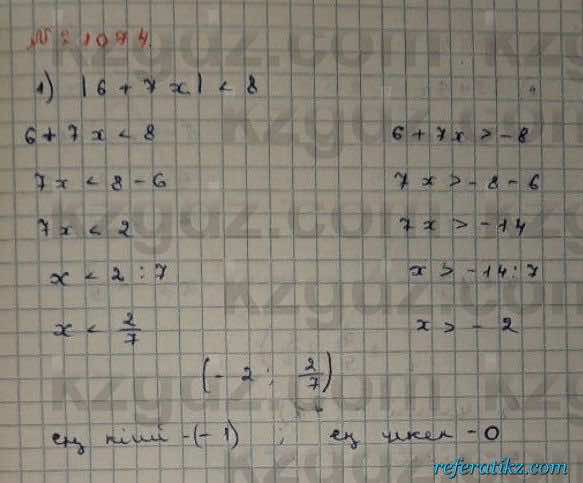 № 1074.
1) |6 + 7x| < 8
6 + 7x < 8 6 + 7x > -8
7x < 8 - 6 7x > -8 - 6
7x < 2 7x > -14
x < 2 : 7 x > -14 : 7
x < 2/7 x > - 2
(- 2 ; 2/7)
ең кіші -(-1) ; ең үлкен - 0
referatikz.com
kzgdz.com